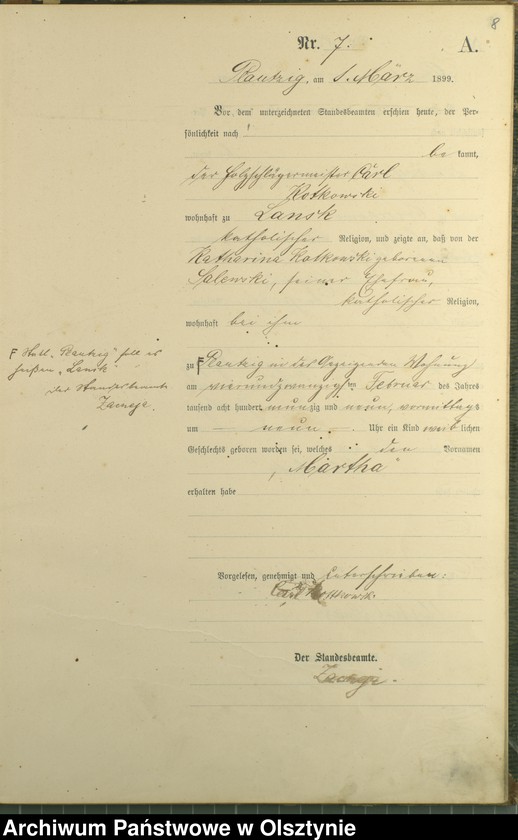 8
Nr. 7. A.
Rautzig, am 1. März 1899.
Vor dem unterzeichneten Standesbeamten erschien heute, der Per-
sönlichkeit nach
be kannt,
der Holzschlägermeister Carl
Kotkowski
wohnhaft zu Lansk
katholischer Religion, und zeigte an, daß von der
Katharina Kotkowski geborenen
Salewski, seiner Ehefrau,
katholischer Religion,
wohnhaft bei ihm
F Statt „Rautzig" soll es
heißen „Lansk"
Der Standesbeamte
zu F Rautzig in des Anzeigenden Wohnung
am vierundzwanzig ten Februar des Jahres
tausend acht hundert neunzig und neun, vormittags
um — neun — Uhr ein Kind weib lichen
Geschlechts geboren worden sei, welches den Vornamen
„Martha"
erhalten habe
Vorgelesen, genehmigt und unterschrieben:
Carl Kotkowski
Der Standesbeamte.
Archiwum Państwowe w Olsztynie